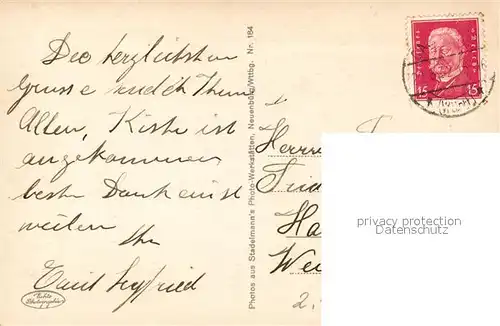 Die herzlichsten
Grüsse sendet Ihnen
Allen, Kiste ist
angekommen
besten Dank einst
weilen
Ihr
Emil Seyfried
Echte Photographie
Photos aus Stadelmann's Photo-Werkstätten, Neuenbürg/Wttbg. Nr. 184
15 15
Herrn
Frie
Ha
Wei
2.
privacy protection
Datenschutz